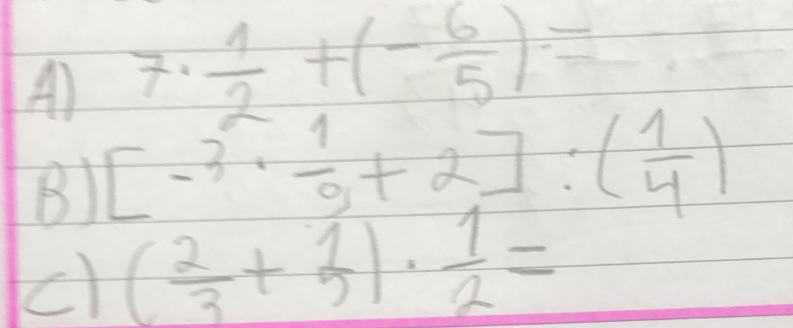 A) 7 · 1/2 + (- 6/5) =
B) [-3 · 1/9 + 2] : (1/4)
C) (2/3 + 1/5) · 1/2 =